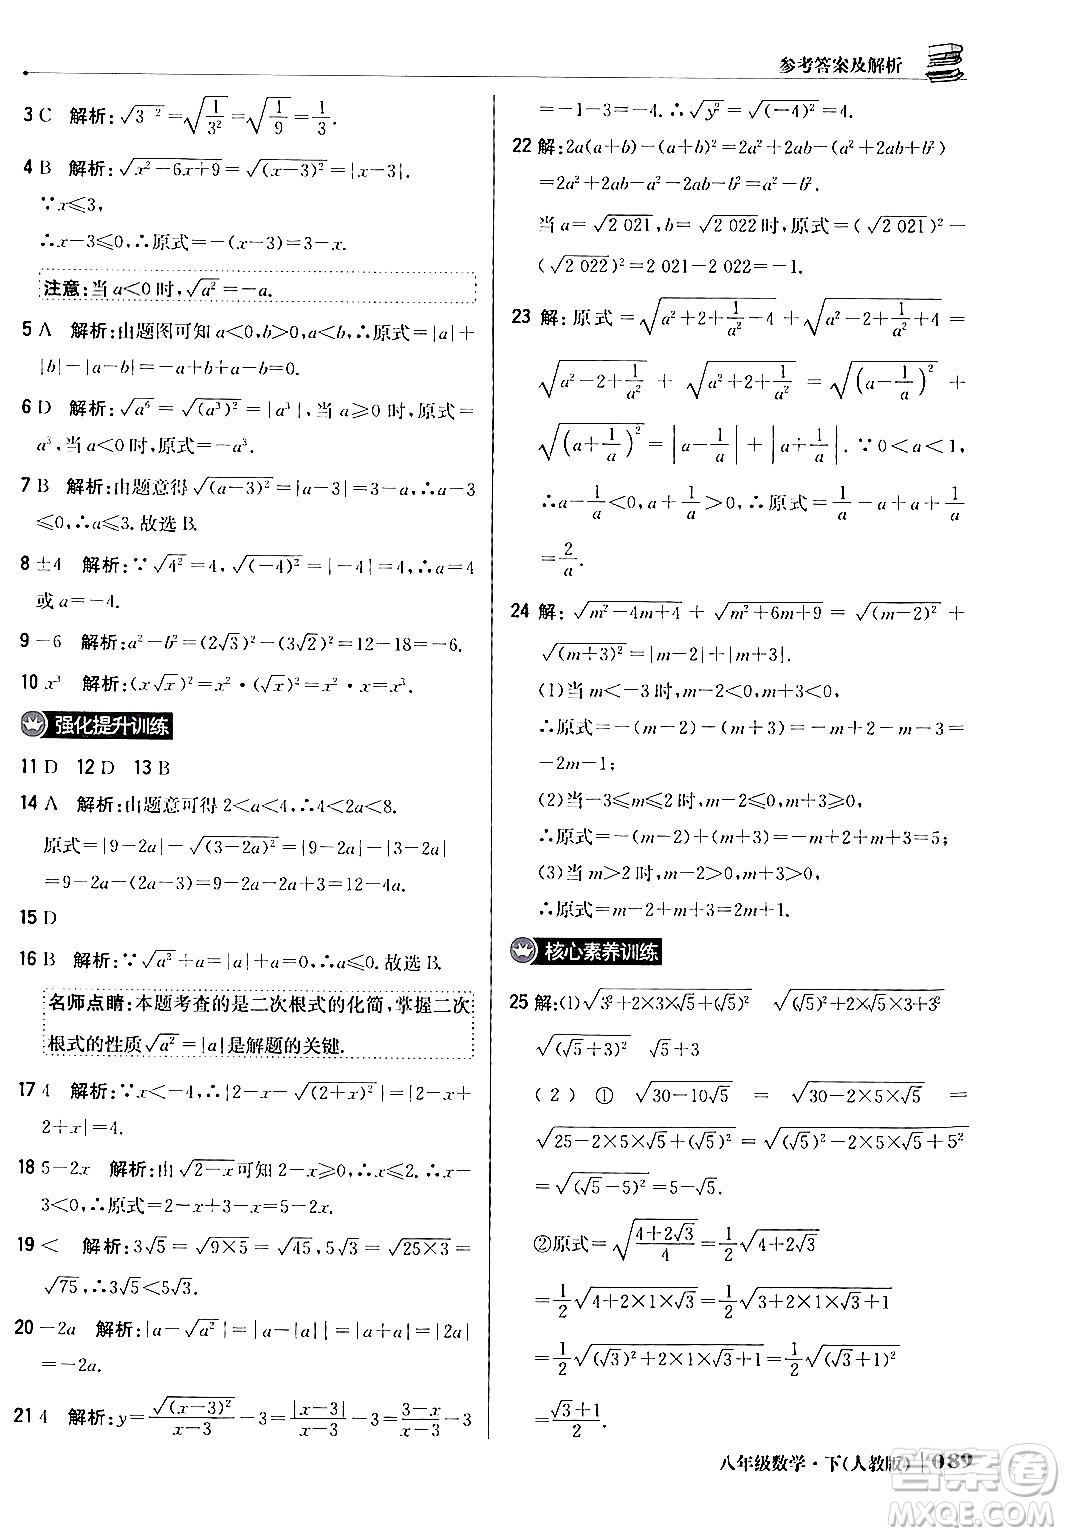 参考答案及解析
3 C 解析:√(3⁻²)=√(1/3²)=√(1/9)=1/3.
4 B 解析:√(x²-6x+9)=√((x-3)²)=|x-3|.
∵x≤3,
∴x-3≤0,∴原式=-(x-3)=3-x.
注意:当a<0时,√a²=-a.
5 A 解析:由题图可知a<0,b>0,a<b,∴原式=|a|+
|b|-|a-b|=-a+b+a-b=0.
6 D 解析:√a⁶=√((a³)²)=|a³|,当a≥0时,原式=
a³,当a<0时,原式=-a³.
7 B 解析:由题意得√((a-3)²)=|a-3|=3-a,∴a-3
≤0,∴a≤3.故选B.
8 ±4 解析:∵√4²=4,√((-4)²)=|-4|=4,∴a=4
或a=-4.
9 -6 解析:a²-b²=(2√3)²-(3√2)²=12-18=-6.
10 x³ 解析:(x√x)²=x²·(√x)²=x²·x=x³.
强化提升训练
11 D 12 D 13 B
14 A 解析:由题意可得2<a<4,∴4<2a<8.
原式=|9-2a|-√((3-2a)²)=|9-2a|-|3-2a|
=9-2a-(2a-3)=9-2a-2a+3=12-4a.
15 D
16 B 解析:∵√a²+a=|a|+a=0,∴a≤0.故选B.
名师点睛:本题考查的是二次根式的化简,掌握二次
根式的性质√a²=|a|是解题的关键.
17 4 解析:∵x<-4,∴|2-√((2+x)²)|=|2+
2+x|=4.
18 5-2x 解析:由√(2-x)可知2-x≥0,∴x≤2,∴x-
3<0,∴原式=2-x+3-x=5-2x.
19 < 解析:3√5=√(9×5)=√45,5√3=√(25×3)=
√75,∴3√5<5√3.
20 -2a 解析:|a-√a²|=|a-|a||=|a+a|=|2a|
=-2a.
21 4 解析:y=√((x-3)²)/(x-3)-3=|x-3|/(x-3)-3=(3-x)/(x-3)-3
=-1-3=-4.∴√y²=√((-4)²)=4.
22 解:2a(a+b)-(a+b)²=2a²+2ab-(a²+2ab+b²)
=2a²+2ab-a²-2ab-b²=a²-b².
当a=√2 021,b=√2 022时,原式=(√2 021)²-
(√2 022)²=2 021-2 022=-1.
23 解:原式=√(a²+2+1/a²-4)+√(a²-2+1/a²+4)=
√(a²-2+1/a²)+√(a²+2+1/a²)=√((a-1/a)²)+
√((a+1/a)²)=|a-1/a|+|a+1/a|.∵0<a<1,
∴a-1/a<0,a+1/a>0,∴原式=-a+1/a+a+1/a
=2/a.
24 解:√(m²-4m+4)+√(m²+6m+9)=√((m-2)²)+
√((m+3)²)=|m-2|+|m+3|.
(1)当m<-3时,m-2<0,m+3<0,
∴原式=-(m-2)-(m+3)=-m+2-m-3=
-2m-1;
(2)当-3≤m≤2时,m-2≤0,m+3≥0,
∴原式=-(m-2)+(m+3)=-m+2+m+3=5;
(3)当m>2时,m-2>0,m+3>0,
∴原式=m-2+m+3=2m+1.
核心素养训练
25 解:(1)√(3²+2×3×√5+(√5)²) √((√5)²+2×√5×3+3²)
√((√5+3)²) √5+3
(2)①√(30-10√5)=√(30-2×5×√5)=
√(25-2×5×√5+(√5)²)=√((√5)²-2×5×√5+5²)
=√((√5-5)²)=5-√5.
②原式=√((4+2√3)/4)=1/2√(4+2√3)
=1/2√(4+2×1×√3)=1/2√(3+2×1×√3+1)
=1/2√((√3)²+2×1×√3+1²)=1/2√((√3+1)²)
=(√3+1)/2.
八年级数学·下(人教版) 089
答案圈
MXQE.COM